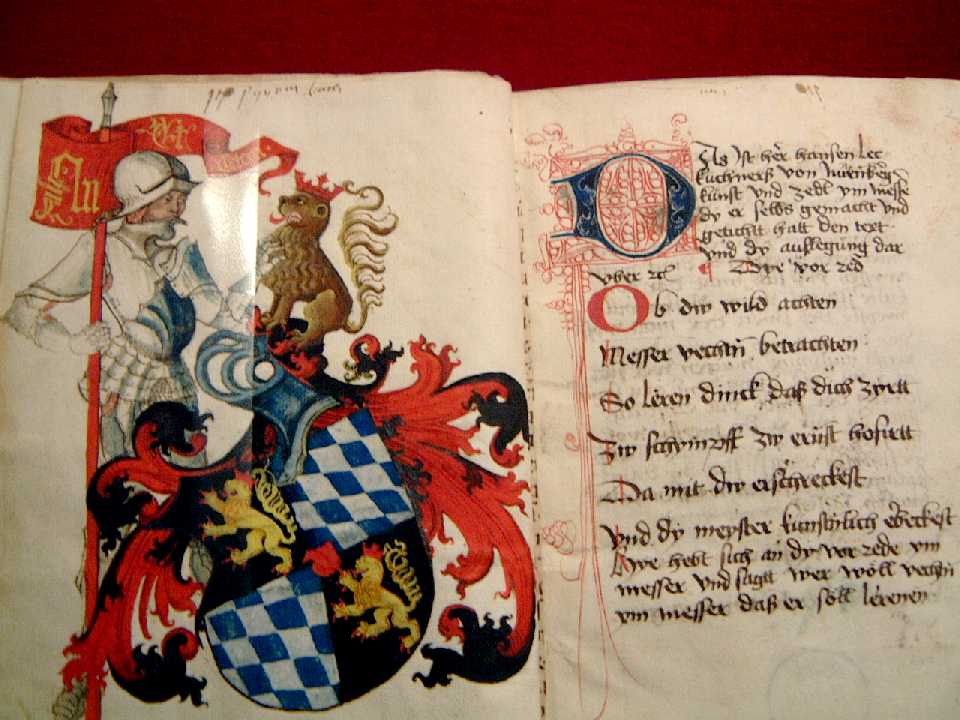 An
Das ist her hansen lec
kuchners von Nurenberg
kunst vnd zedl ym messe
dy er selbs gemacht vnd
getichtt hatt den text
vnd dy auslegung dar
vber
Dye vor red
Ob dw wild achten
Messer vechtn betrachten
So leren dinck daß dich zyrtt
Zw schympff zw ernst hofirtt
Da mit dw erschreckest
Vnd dy meyster kunstnlich erbeckest
Hye hebt sich an dy vor rede ym
messer vnd sagtt wer wöll vechtn
ym messer daß er soll lerenen